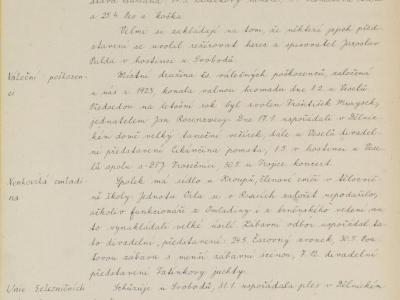 a 25.4. Leo a kočka.
Velmi se zakládají na tom, že některé jejich před-
stavení se uvolil režírovat herec a spisovatel Jaroslav
v hostinci u Svobodů.
Váleční poškozen-
ci
Místní družina čs. válečných poškozenců, založená
u nás r. 1923, konala valnou hromadu dne 1.2. u Veselů.
Předsedou na letošní rok byl zvolen František
jednatelem Jan Rosenzweig. Dne 17.1. uspořádali v Dělnic-
kém domě velký taneční věneček, dále u Veselů divadel-
ní představení pomsta, 1.5. v hostinci u Vese-
lů spolu s DTJ 30.5. u Trojice koncert.
Venkovská omladi
na
Spolek má sídlo u Kroupů, členové cvičí v tělocvič-
ně školy. Jednotu Orla se v Rosicích založit nepodařilo,
ačkoliv funkcionáři z Omladiny i z brněnského vedení na
to vynakládali velké úsilí. Zábavní odbor uspořádal ta-
to divadelní představení: 24.5. Čarovný zvonek, 30.5. Pou-
ťovou zábavu s menší zábavní scénou, 7.12. divadelní
představení Tatínkovy juchty.
Unie železničních
Schůzuje u Svobodů, 31.1. uspořádala ples v Dělnickém